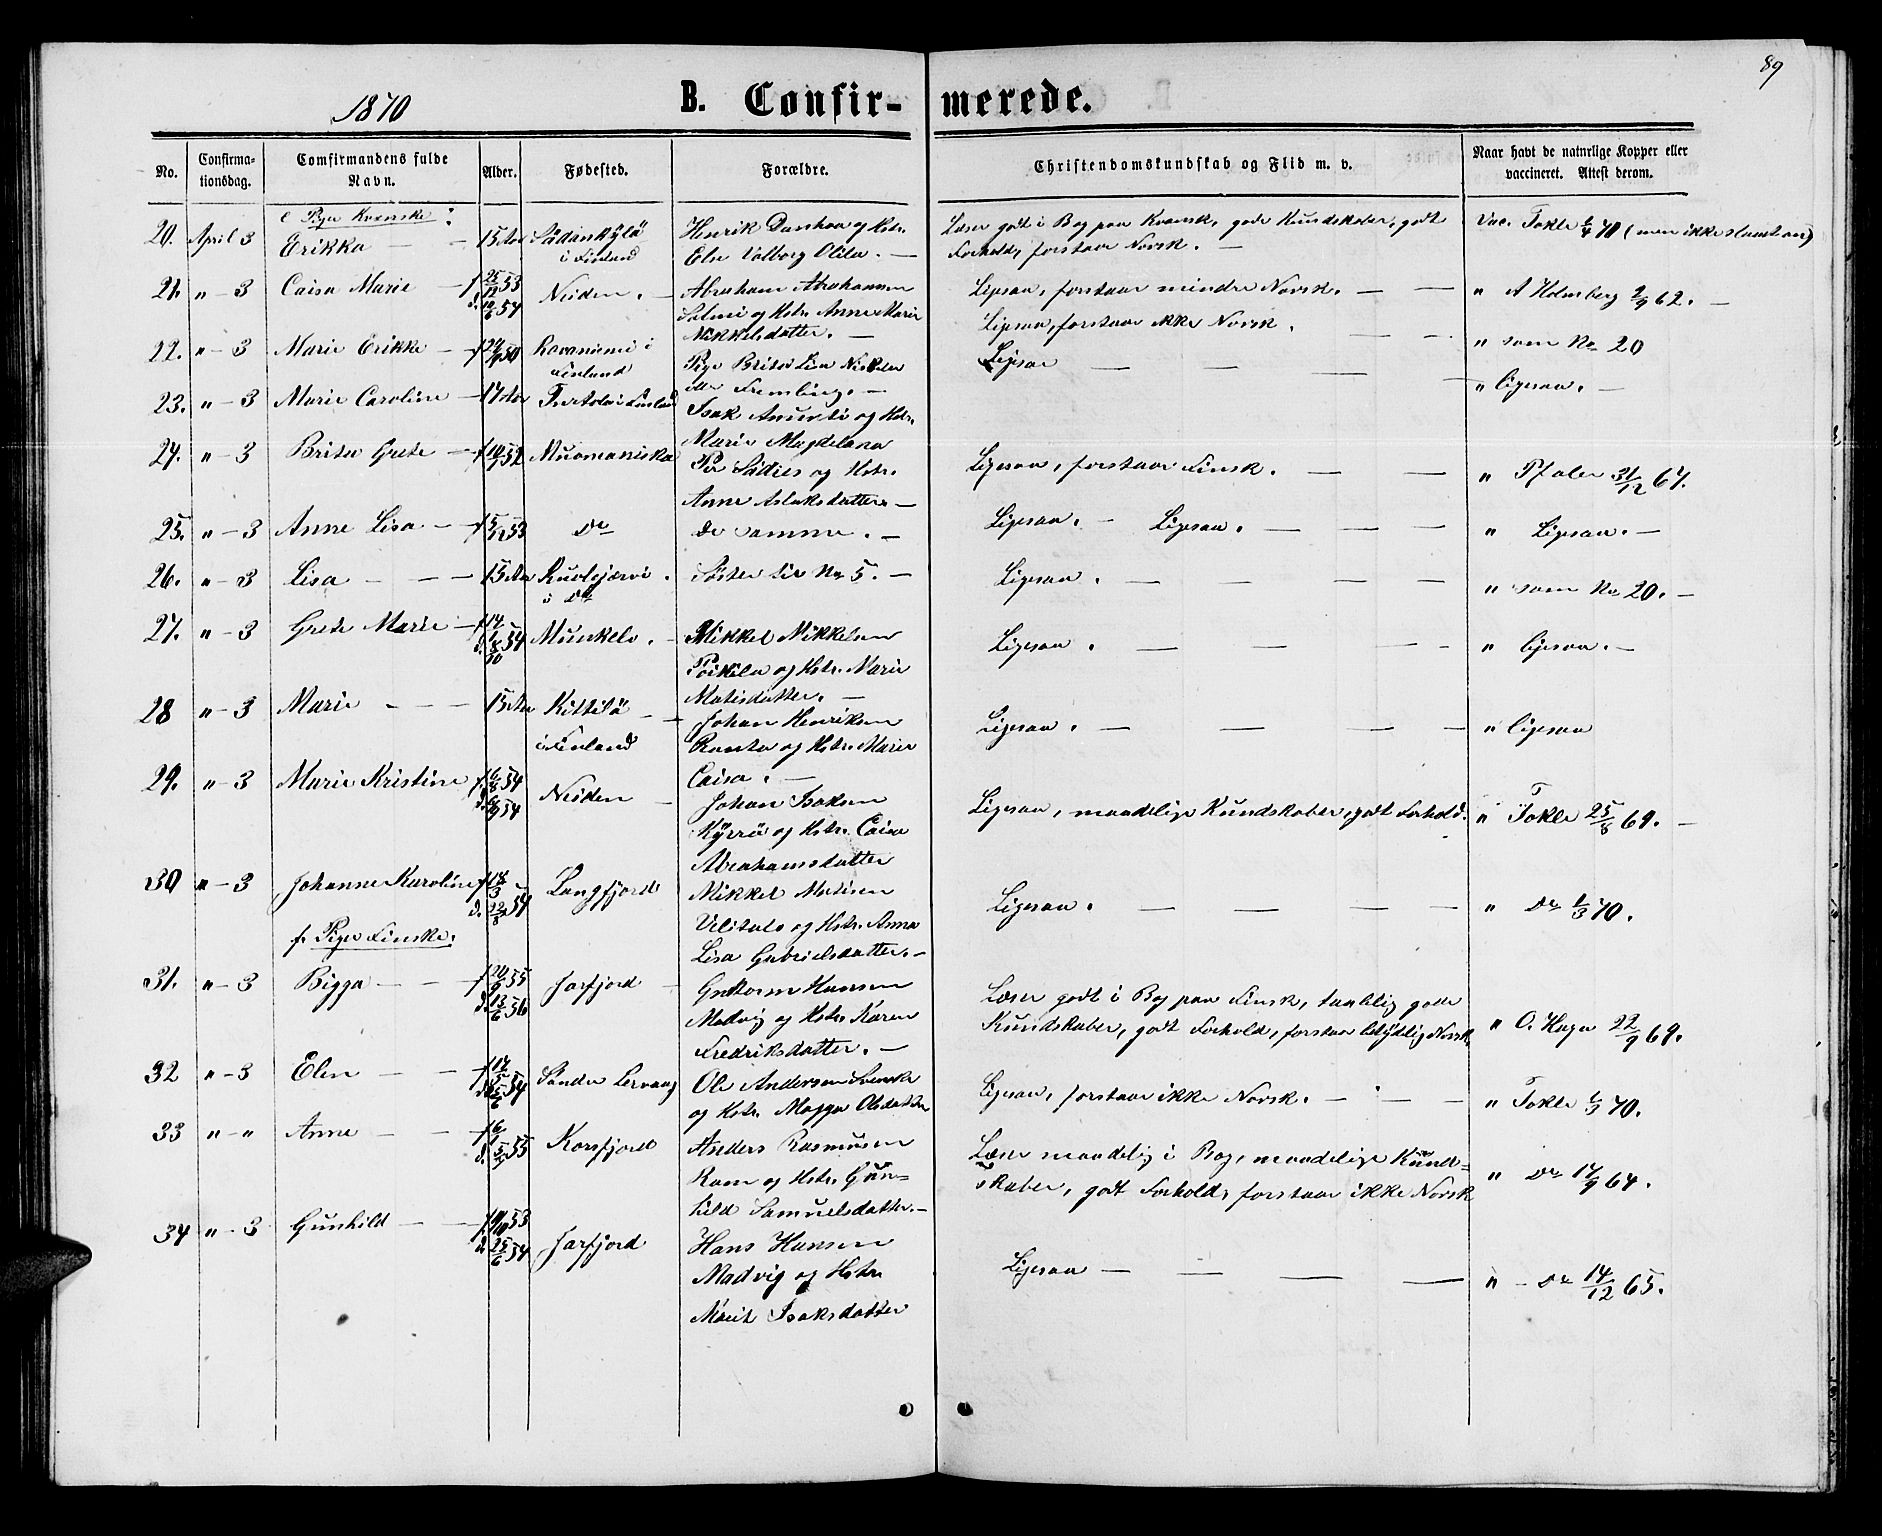 89
1870 B. Confir- merede.
No. Confirma-tionsdag. Comfirmandens fulde Navn. Alder. Fødested. Forældre. Christendomskundskab og Flid m. v. Naar havt de naturlige Kopper eller vaccineret. Attest derom.
e Piger Kvænske:
20. April 3 Erikka — — 15 Aar Sådankylä i Finland Henrik og Hstr. Else Valborg Olila. — Læser godt i Bog paa Kvænsk, gode Kundskaber, godt Forhold, forstaar Norsk. — Vac. Tokle 70 (men ikke
21. " — 3 Caisa Marie — f 25/12 53 d. 54 Neiden. — Abraham Abrahamsen Salmi og Hstr. Anne Marie Mikkelsdatter. — Ligesaa, forstaar mindre Norsk. — — " A Holmberg 2/9 62. —
22. " — 3 Marie Erikke — f 50 Rovaniemi i Finland Pige Brita Lisa Niskela — Ligesaa, forstaar ikke Norsk. — — " som No 20
23. " — 3 Marie Caroline — 17 Aar i Finland Isak og Hstr. Marie Magdelena Ligesaa — — — — " ligesaa. —
24. " — 3 Brita Grete — f 52 Muomaniska Per og Hstr. Anne Aslaksdatter. — Ligesaa, forstaar Finsk. — — " Pfaler 31/12 67.
25. " — 3 Anne Lisa — f 53 Do de Samme. — Ligesaa. — Ligesaa. — — — " Ligesaa. —
26. " — 3 Lisa — — — 15 Aar Kuolajærvi i Do Søster til No 5. — Ligesaa. — — — — " som No 20. —
27. " — 3 Grete Marie — f 14 d. 8/10 54 Munkelv. — Mikkel Mikkelsen og Hstr. Marie Matisdatter. — Ligesaa. — — — " ligesaa. —
28 " — 3 Marie — — — 15 Aar Kittilä i Finland — Johan Henriksen Ranta og Hstr. Marie Caisa. — Ligesaa. — — — — " ligesaa
29. " — 3 Marie Kristine f. 54 d. 54 Neiden — Johan Isaksen Kyrrö og Hstr. Caisa Abrahamsdatter Ligesaa, maadelige Kundskaber, godt Forhold. " Tokle 25/8 69. —
30 " — 3 Johanne Karoline f 18/3 d. 22/8 54 Langfjord Mikkel Matisen og Hstr. Anna Lisa Gabrielsdatter. — Ligesaa. — — — — " Do 1/3 70.
f. Piger Finske.
31. " — 3 Bigga — — f 20/9 55 d. 13/6 56 Jarfjord — Guttorm Hansen Madvig og Hstr. Karen Fredriksdatter. — Læser godt i Bog paa Finsk, taalelig gode Kundskaber, godt Forhold, forstaar Norsk " O. Hagen 22/9 69.
32 " — 3 Elen — — f 17 d. 54 Søndre Lervaag Ole Andersen Svenske og Hstr. Magga Olsdatter Ligesaa, forstaar ikke Norsk. — — — " Tokle 1/3 70.
33 " — " Anne — — f 6/1 d. 55 Korsfjord Anders Rasmusen Ram og Hstr. Gun- hild Samuelsdatter. — Læser maadelig i Bog, maadelige Kund- skaber, godt Forhold, forstaar ikke Norsk " Do 17/9 64.
34 " — 3 Gunhild — — f 53 d. 25/6 54 Jarfjord Hans Hansen Madvig og Hstr. Marit Isaksdatter Ligesaa — — — — " — Do 14/12 65.